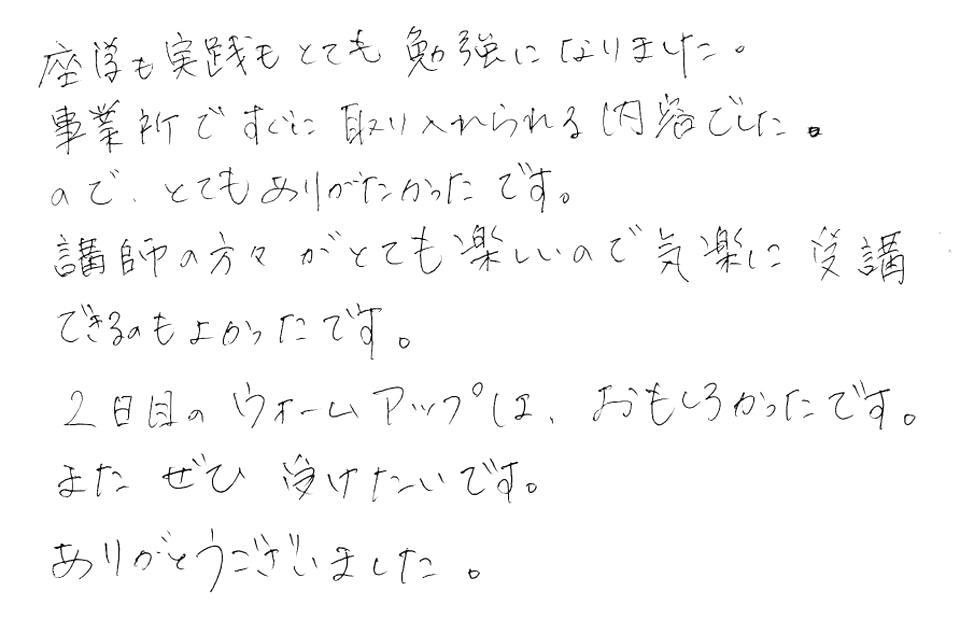 座学も実践もとても勉強になりました。
事業所ですぐに取り入れられる内容でした。
ので、とてもありがたかったです。
講師の方々がとても楽しいので気楽に受講
できるのもよかったです。
2日目のウォームアップは、おもしろかったです。
またぜひ受けたいです。
ありがとうございました。